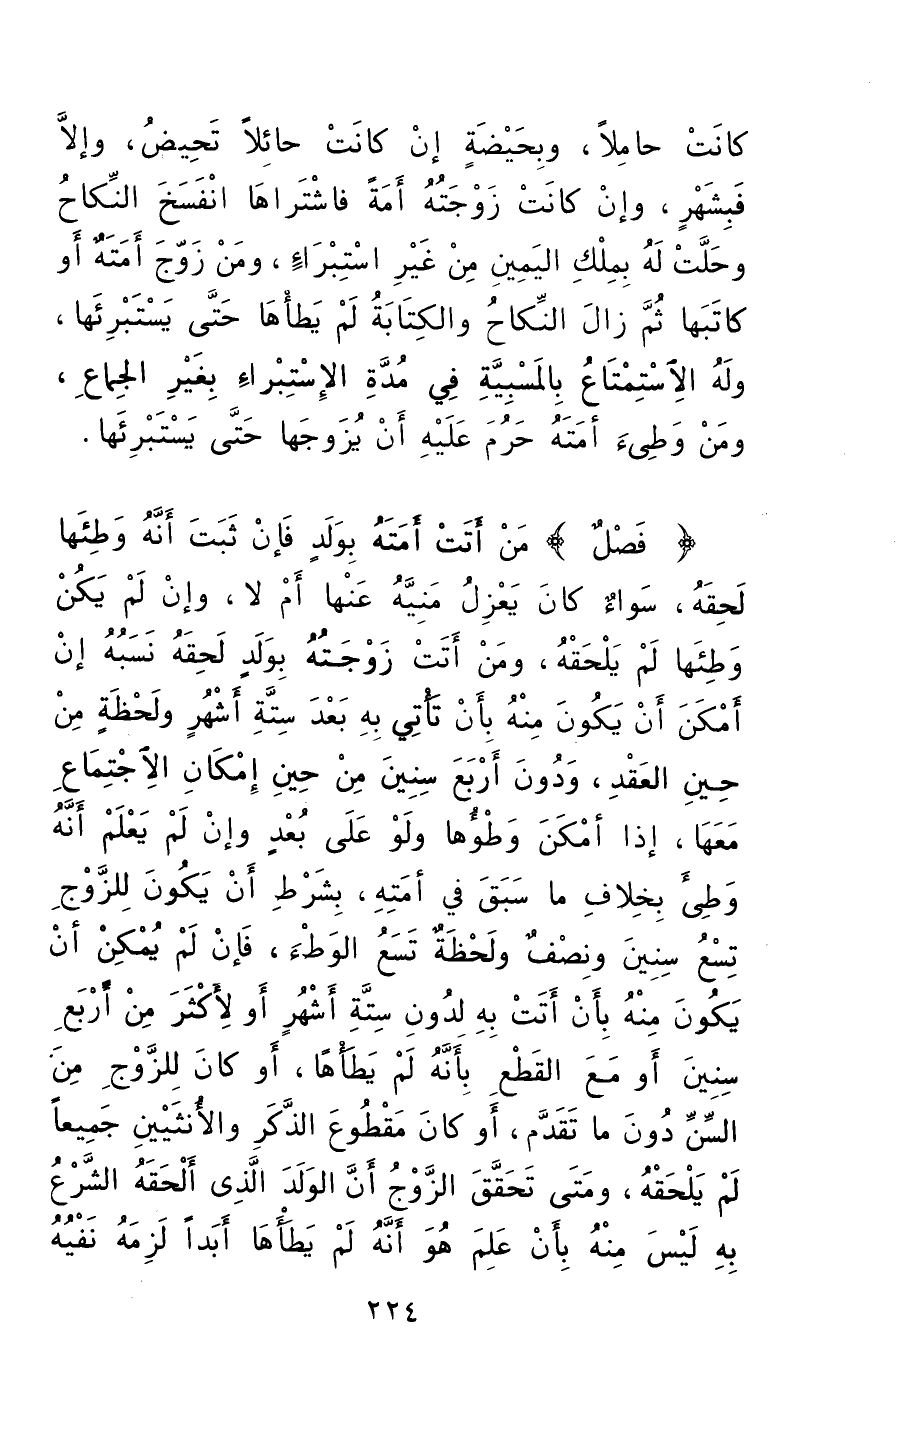 كانَتْ حامِلاً، وبِحَيْضَةٍ إنْ كانَتْ حائِلاً تَحِيضُ، وإلاَّ
فَبِشَهْرٍ، وإنْ كانَتْ زَوْجَتُهُ أَمَةً فاشْتَراهَا انْفَسَخَ النِّكاحُ
وحَلَّتْ لَهُ بِمِلْكِ اليَمِينِ مِنْ غَيْرِ اسْتِبْرَاءٍ، ومَنْ زَوَّجَ أَمَتَهُ أو
كاتَبَها ثُمَّ زالَ النِّكاحُ والكِتابَةُ لَمْ يَطَأْهَا حَتَّى يَسْتَبْرِئَها،
ولَهُ الاِسْتِمْتاعُ بِالمَسْبِيَّةِ فِي مُدَّةِ الإسْتِبْراءِ بِغَيْرِ الجِماعِ،
ومَنْ وَطِىءَ أمَتَهُ حَرُمَ عَلَيْهِ أَنْ يُزَوجَها حَتَّى يَسْتَبْرِئَها.
﴿ فَصْلٌ ﴾ مَنْ أَتَتْ أَمَتَهُ بِوَلَدٍ فَإنْ ثَبَتَ أَنَّهُ وَطِئَها
لَحِقَهُ، سَواءٌ كانَ يَعْزِلُ مَنِيَّهُ عَنْها أَمْ لا، وإنْ لَمْ يَكُنْ
وَطِئَها لَمْ يَلْحَقْهُ، ومَنْ أَتَتْ زَوْجَتُهُ بِوَلَدٍ لَحِقَهُ نَسَبُهُ إنْ
أَمْكَنَ أَنْ يَكُونَ مِنْهُ بِأَنْ تَأْتِي بِهِ بَعْدَ سِتَّةِ أَشْهُرٍ ولَحْظَةٍ مِنْ
حِينِ العَقْدِ، وَدُونَ أَرْبَعَ سِنِينَ مِنْ حِينِ إمْكَانِ الاِجْتِمَاعِ
مَعَهَا، إذا أمْكَنَ وَطْؤُها ولَوْ عَلَى بُعْدٍ وإنْ لَمْ يَعْلَمْ أَنَّهُ
وَطِىَٔ بِخِلافِ ما سَبَقَ في أمَتِهِ، بِشَرْطِ أَنْ يَكُونَ لِلزَّوْجِ
تِسْعُ سِنِينَ ونِصْفٌ ولَحْظَةٌ تَسَعُ الوَطْءَ، فَإنْ لَمْ يُمْكِنْ أنْ
يَكُونَ مِنْهُ بِأَنْ أَتَتْ بِهِ لِدُونِ سِتَّةِ أَشْهُرٍ أو لِأَكْثَرَ مِنْ أَرْبَعِ
سِنِينَ أَو مَعَ القَطْعِ بِأَنَّهُ لَمْ يَطَأْهَا، أَو كانَ لِلزَّوْجِ مِنَ
السِّنِّ دُونَ ما تَقَدَّم، أَو كانَ مَقْطُوعَ الذَّكَرِ والأُنثَيَيْنِ جَمِيعاً
لَمْ يَلْحَقْهُ، ومَتَى تَحَقَّقَ الزَّوْجُ أَنَّ الوَلَدَ الَّذِى أَلْحَقَهُ الشَّرْعُ
بِهِ لَيْسَ مِنْهُ بِأَنْ عَلِمَ هُوَ أَنَّهُ لَمْ يَطَأْهَا أَبَداً لَزِمَهُ نَفْيُهُ
٢٢٤